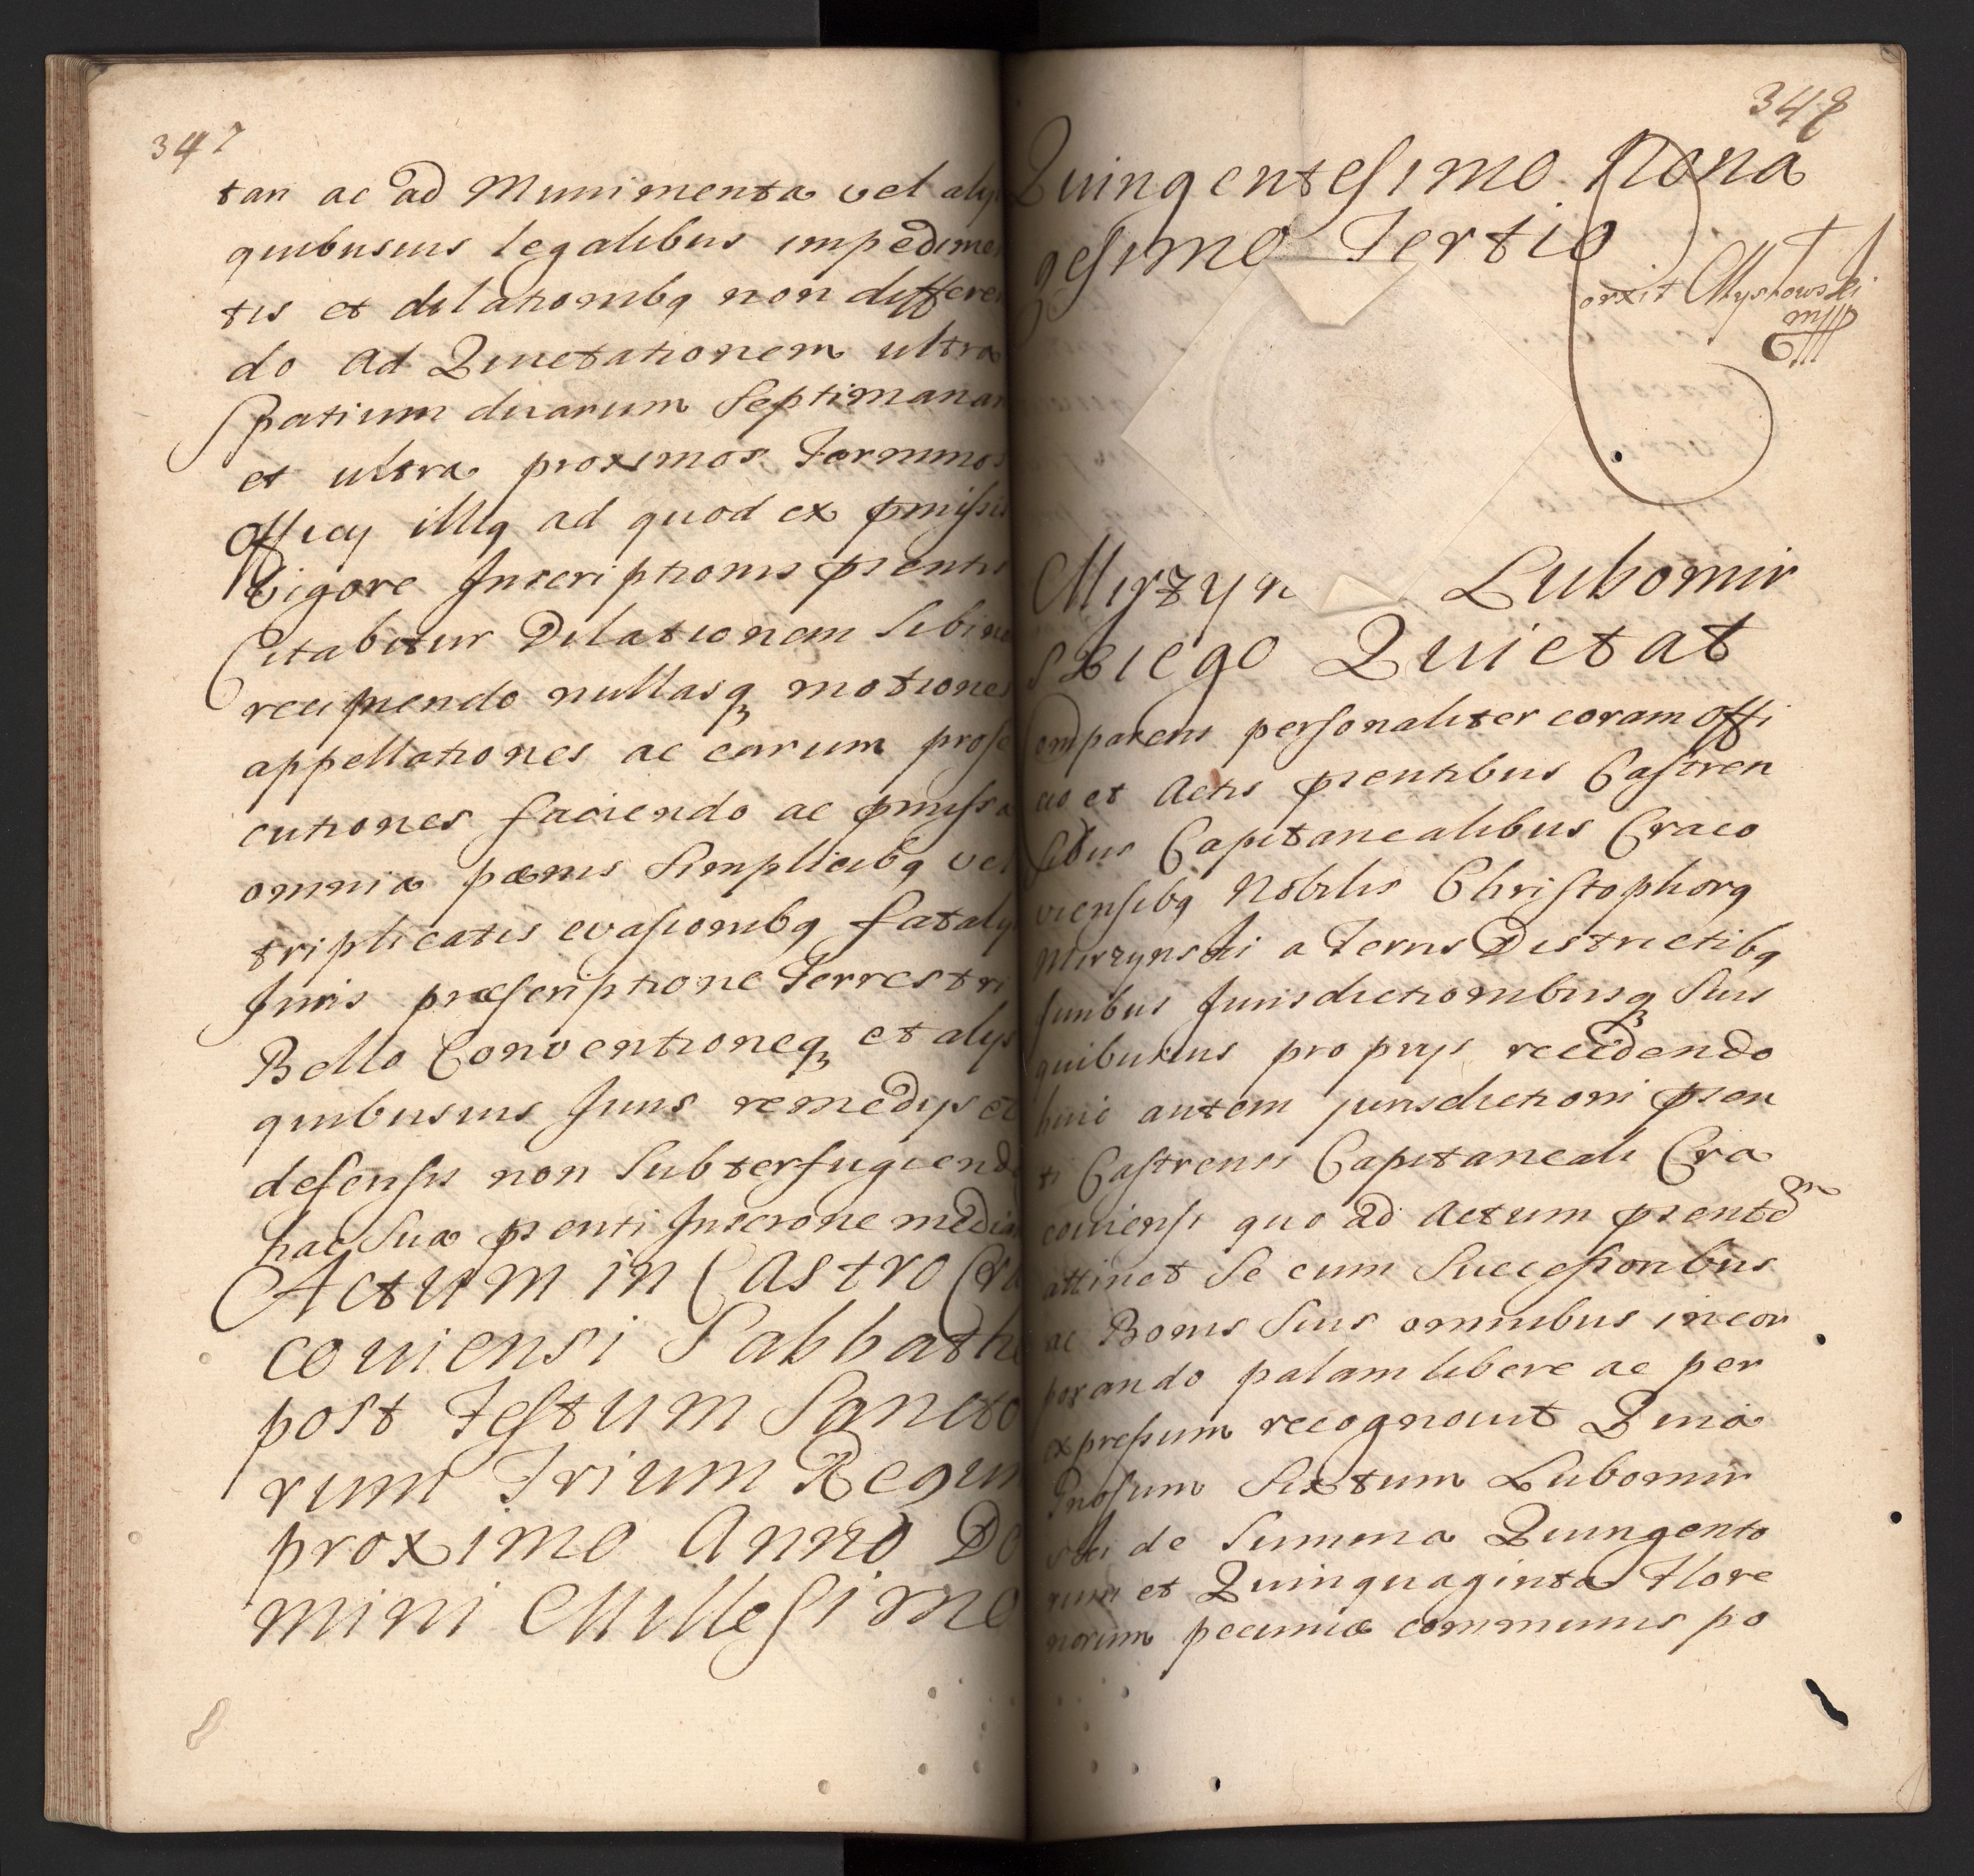 347
tari ac ad Munimenta vel alys
quibusuis legalibus impedimen
tis et dilationibq non differen
do ad Quietationem ultra
Spatium duarum Septimanar
et ultra proximos Terminos
Officy illiq ad quod ex pmissis
Vigore Inscriptionis psentis
Citabitur Dilationem Sibi no
recipiendo nullasq motiones
appellationes ac earum prose
cutiones faciendo ac pmissa
omnia pœnis Simplicibq vel
triplicatis evasionibq fatalys
Juris præscriptione Terrestri
Bello Conventioneq et alys
quibusuis Juris remedys et
defensis non Subterfugiendo
hac Sua psenti Inscrone media
Actum in Castro Cra
couiensi Sabbatho
post Festum Sancto
rum Trium Regum
proximo Anno Do
mini Millesimo
348
Quingentesimo Nona
gesimo Tertio
orxit Myskowski
mpp
Mirzyn Lubomir
skiego Quietat
Comparens personaliter coram Offi
cio et Actis psentibus Castren
sibus Capitanealibus Craco
viensibq Nobilis Christophorq
Mirzynski a Terris Districtibq
suribus Jurisdictionibusq Suis
quibusuis proprys recedendo
huic autem jurisdictioni psen
ti Castrensi Capitaneali Cra
couiensi quo ad Actum psente
attinet Se cum Successoribus
ac Bonis Suis omnibus incor
porando palam libere ac per
expressum recognouit Quia
Gnosum Sixtum Lubomir
ski de Summa Quingento
rum et Quinquaginta Flore
norum pecuniæ communis po